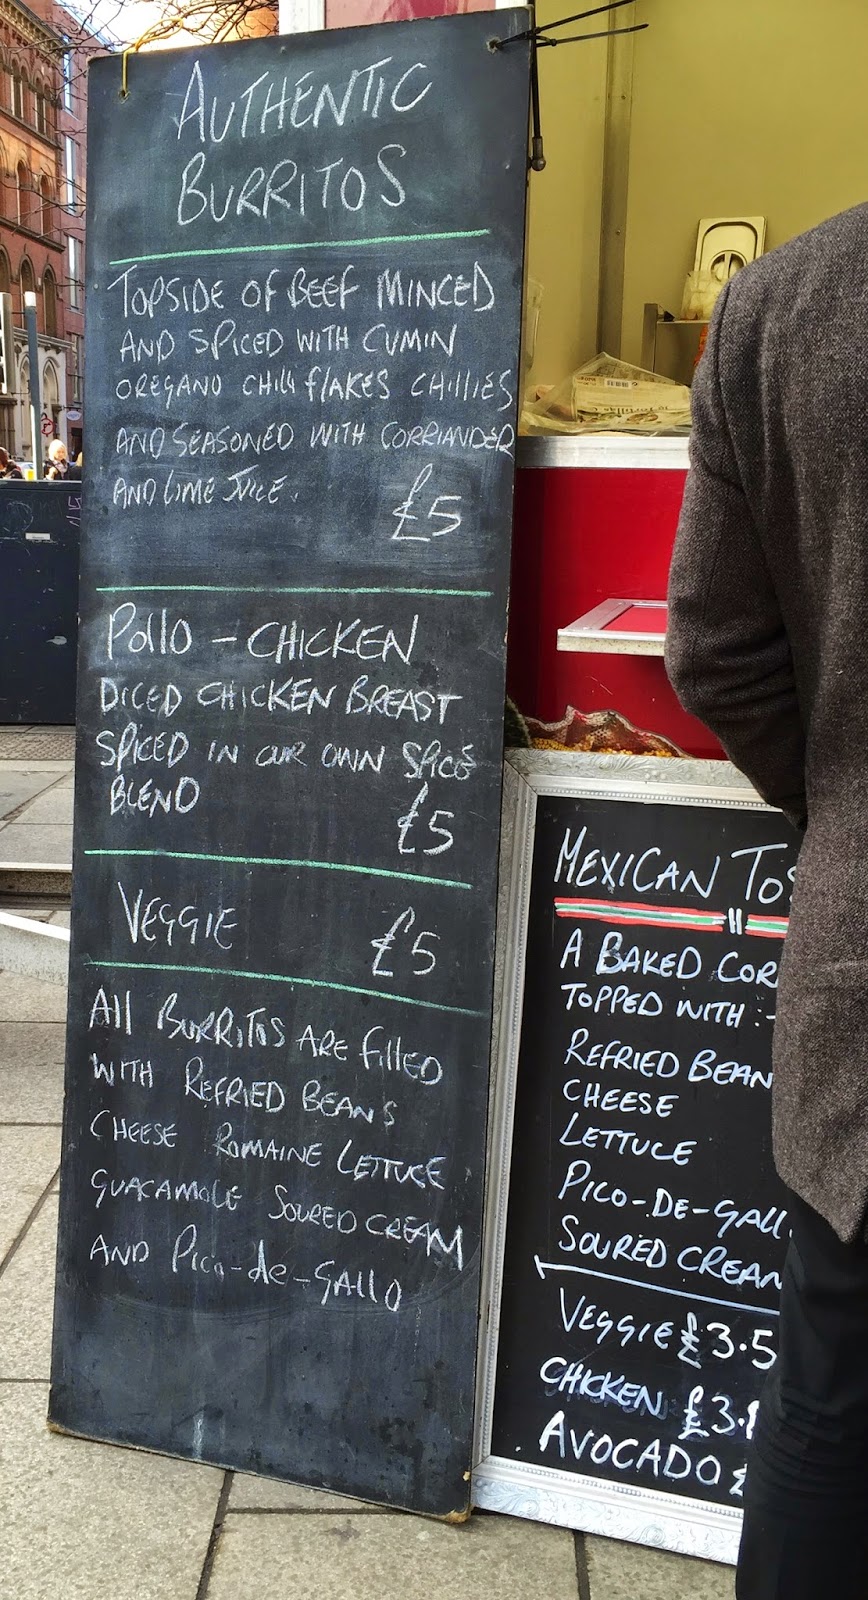 AUTHENTIC
BURRITOS
TOPSIDE OF BEEF MINCED
AND SPICED WITH CUMIN
OREGANO CHILLI FLAKES CHILLIES
AND SEASONED WITH CORRIANDER
AND LIME JUICE.
£5
POLLO - CHICKEN
DICED CHICKEN BREAST
SPICED IN OUR OWN SPICE
BLEND
£5
VEGGIE £5
All BURRITOS ARE FILLED
WITH REFRIED BEANS
CHEESE ROMAINE LETTUCE
GUACAMOLE SOURED CREAM
AND PICO-de-GALLO
MEXICAN TOS
A BAKED COR
TOPPED WITH :-
REFRIED BEAN
CHEESE
LETTUCE
PICO-DE-GALL
SOURED CREAM
VEGGIE £3.5
CHICKEN £3.
AVOCADO £